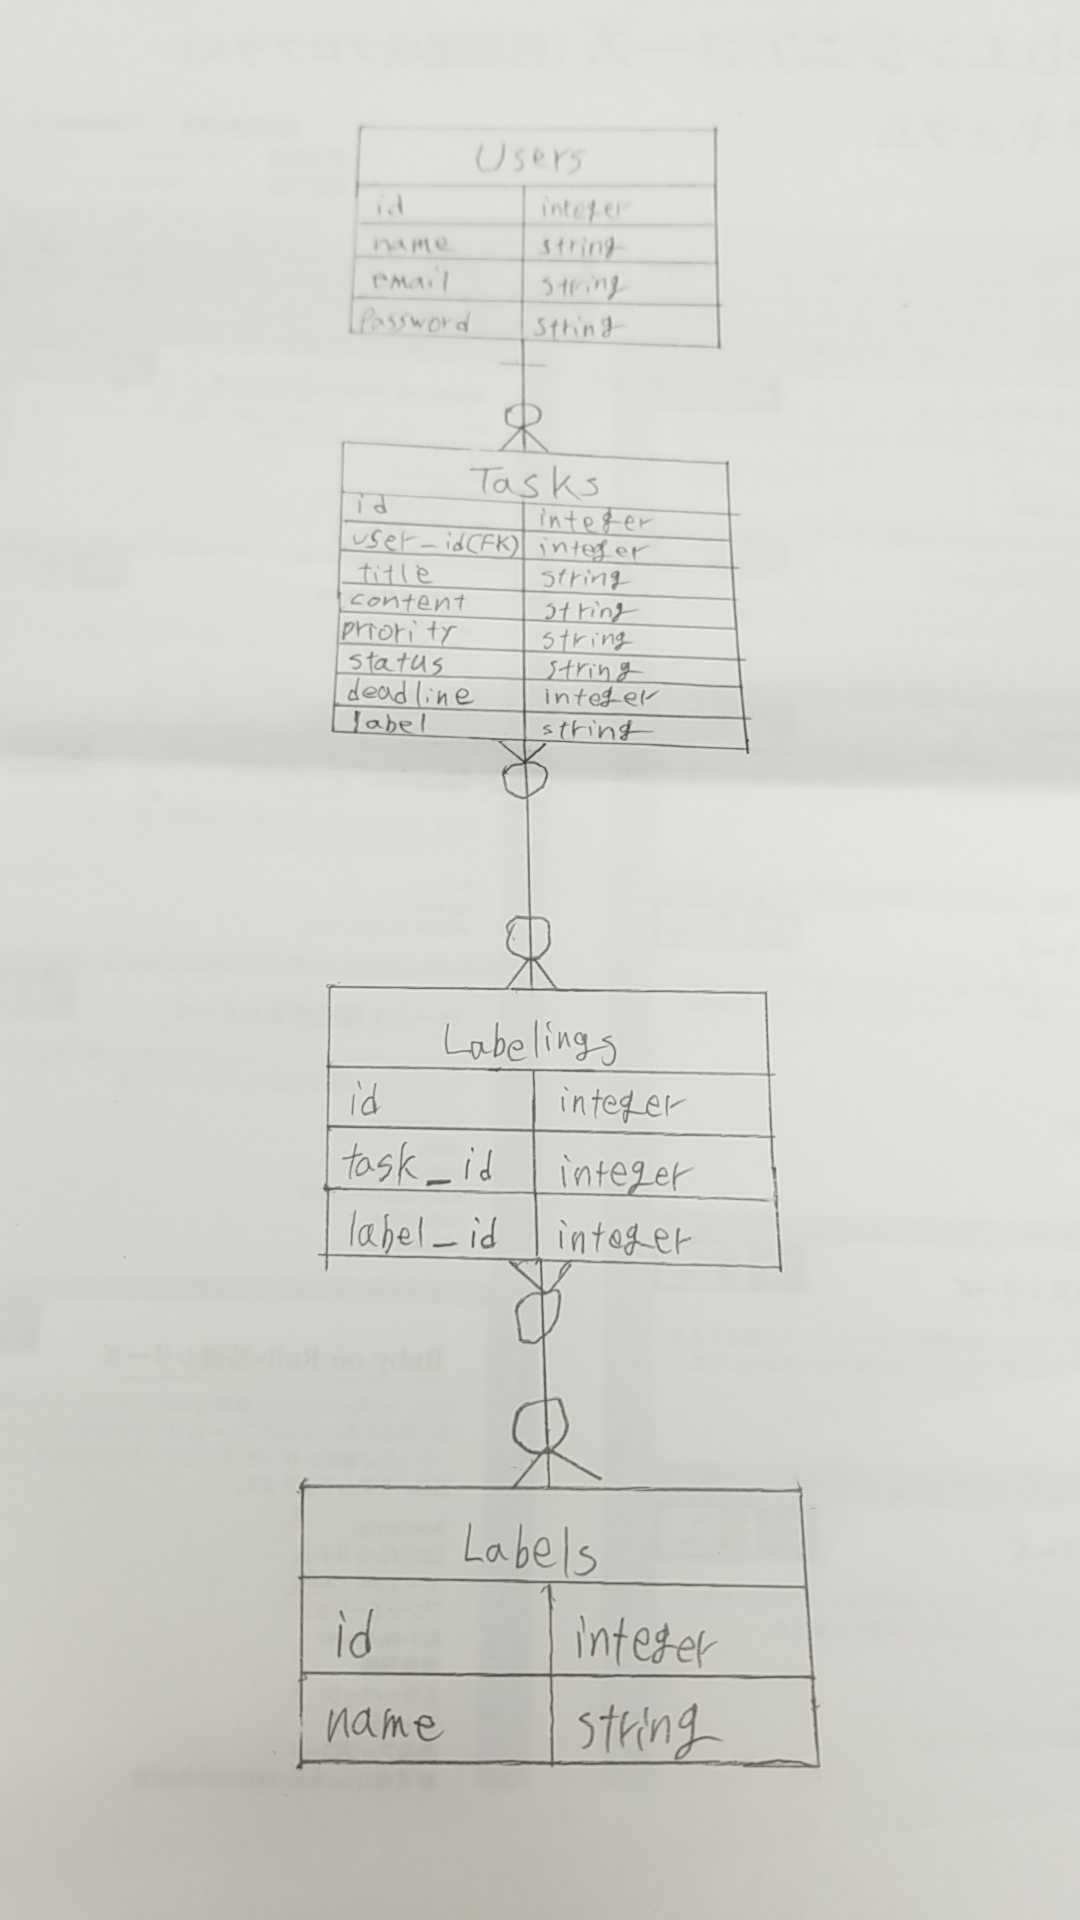 Users
id integer
name string
email string
Password string
Tasks
id integer
user_id(FK) integer
title string
content string
priority string
status string
deadline integer
label string
Labelings
id integer
task_id integer
label_id integer
Labels
id integer
name string